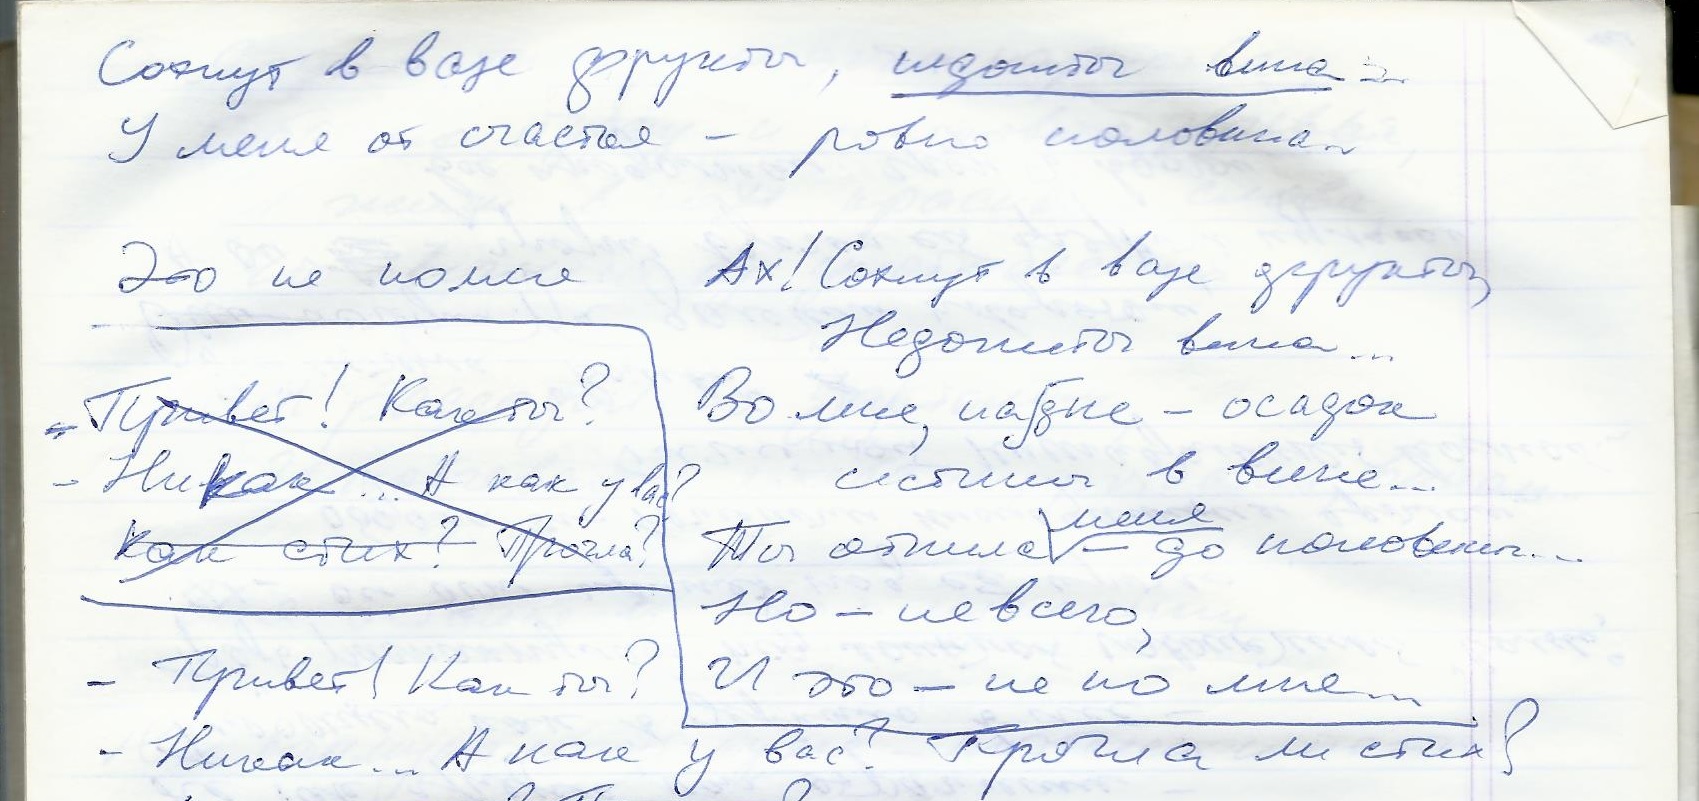 Сохнут в вазе фрукты, недопиты вина...
У меня от счастья – ровно половина...
Это не по мне
Ах! Сохнут в вазе фрукты,
Недопиты вина...
Во мне, на дне – осадок
истины в вине...
меня
Ты отпила – до половины...
Но – не всего,
И это – не по мне...
- Привет! Как ты?
- Никак... А как у вас?
Как стих? Прочла?
- Привет! Как ты?
- Никак... А как у вас? Прочла ли стих?